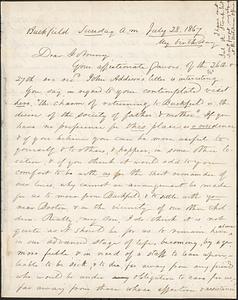 Buckfield Tuesday a.m. July 28. 1867
My birthday
Dear
Your affectionate favors of the 26th &
27th are rec^d. John Addison's letter is interesting
You say, in regard to your contemplated visit
here, "The charm of returning to Buckfield is the
desire of the society of father & mother." If you
have no preference for this place as a residence
& if you believe you can be as useful to
yourselves & to others, & happier, in some other lo-
cation, & if you think it would add to your
comfort to be with us for the short remainder of
our lives, why cannot an arrangement be made
for us to move from Buckfield, & to settle with you
near Boston & in the vicinity of our other chil-
dren. Really, my son, I do think it is not
quite as it should be for us to remain alone
in our advanced stage of life, becoming, by age
more feeble & in need of a staff to lean upon,
liable to be sick & to die far away from any friend
who would be under obligation to care for us,
far away from those whose affection